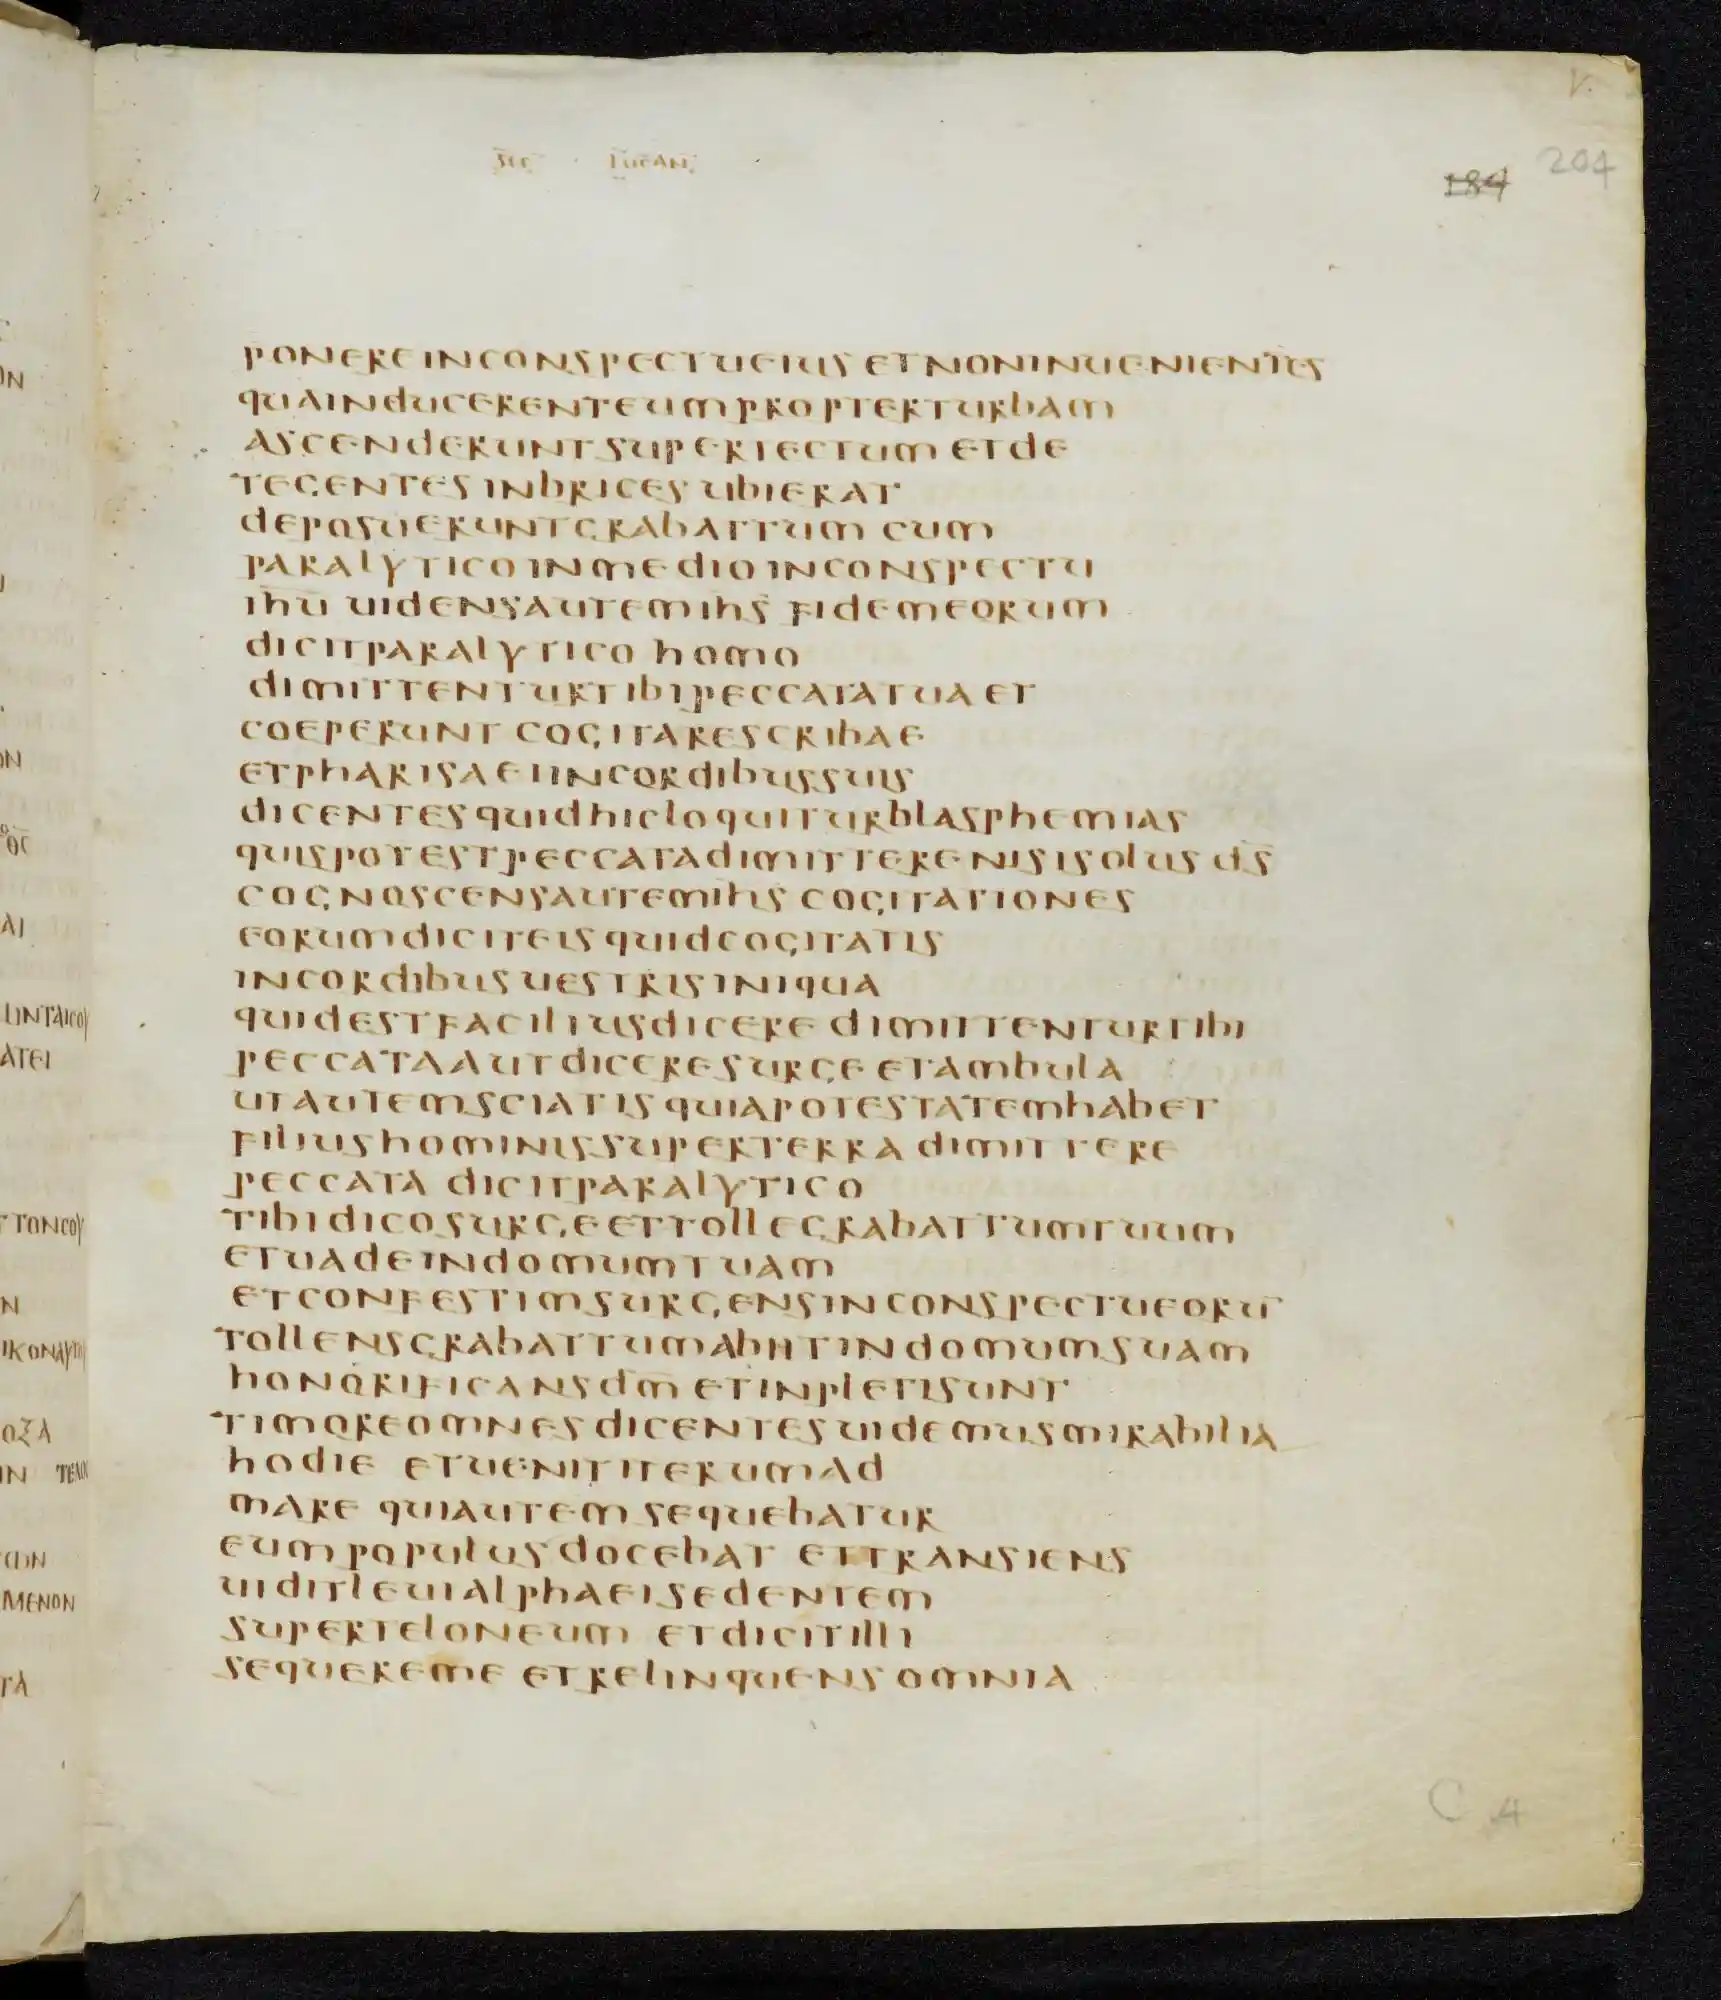 SEC LUCAN
184 204
PONERE IN CONSPECTU EIUS ET NON INUENIENTES
QUA INDUCERENT EUM PROPTER TURBAM
ASCENDERUNT SUPER TECTUM ET DE
TEGENTES INBRICES UBI ERAT
DEPOSUERUNT GRABATTUM CUM
PARALYTICO IN MEDIO IN CONSPECTU
IHU UIDENS AUTEM IHS FIDEM EORUM
DICIT PARALYTICO HOMO
DIMITTENTUR TIBI PECCATA TUA ET
COEPERUNT COGITARE SCRIBAE
ET PHARISAEI IN CORDIBUS SUIS
DICENTES QUID HIC LOQUITUR BLASPHEMIAS
QUIS POTEST PECCATA DIMITTERE NISI SOLUS D̅S̅
COGNOSCENS AUTEM IHS COGITATIONES
EORUM DICIT EIS QUID COGITATIS
IN CORDIBUS UESTRIS INIQUA
QUID EST FACILIUS DICERE DIMITTENTUR TIBI
PECCATA AUT DICERE SURGE ET AMBULA
UT AUTEM SCIATIS QUIA POTESTATEM HABET
FILIUS HOMINIS SUPER TERRA DIMITTERE
PECCATA DICIT PARALYTICO
TIBI DICO SURGE ET TOLLE GRABATTUM TUUM
ET UADE IN DOMUM TUAM
ET CONFESTIM SURGENS IN CONSPECTU EORU̅
TOLLENS GRABATTUM ABIIT IN DOMUM SUAM
HONORIFICANS D̅M̅ ET INPLETI SUNT
TIMORE OMNES DICENTES UIDEMUS MIRABILIA
HODIE ET UENIT ITERUM AD
MARE QUI AUTEM SEQUEBATUR
EUM POPULUS DOCEBAT ET TRANSIENS
UIDIT LEUI ALPHAEI SEDENTEM
SUPER TELONEUM ET DICIT ILLI
SEQUERE ME ET RELINQUENS OMNIA
C 4